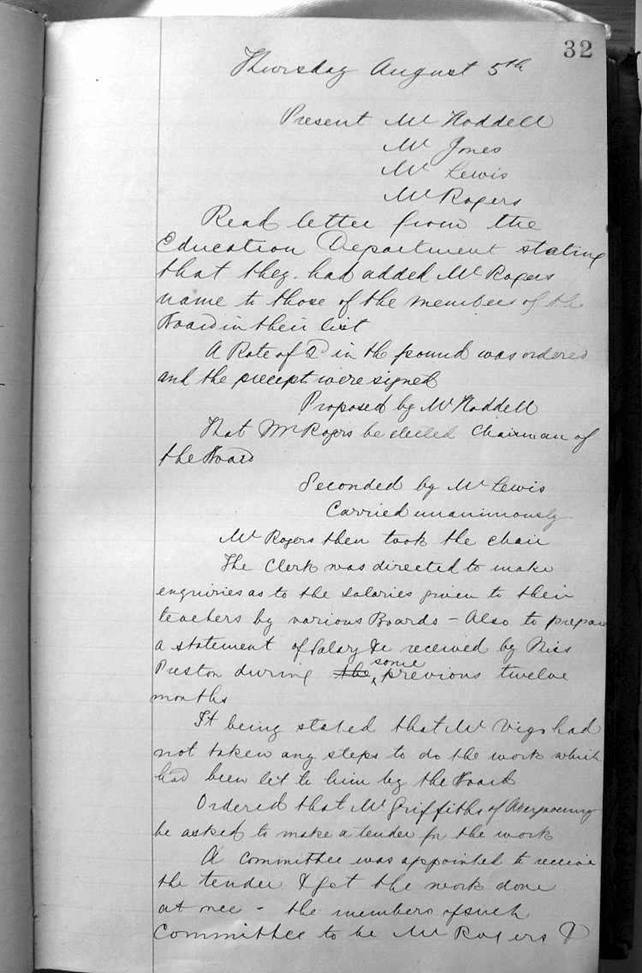 32
Thursday August 5th
Present Mr Hoddell
Mr Jones
Mr Lewis
Mr Rogers
Read letter from the
Education Department stating
that they had added Mr Rogers
name to those of the members of the
Board in their list
A Rate of in the pound was ordered
and the precept were signed
Proposed by Mr Hoddell
That Mr Rogers be elected Chairman of
the Board
Seconded by Mr Lewis
Carried unanimously
Mr Rogers then took the chair
The Clerk was directed to make
enquiries as to the salaries given to their
teachers by various Boards - Also to prepare
a statement of Salary &c received by Miss
Preston during the some previous twelve
months
It being stated that Mr had
not taken any steps to do the work which
had been let to him by the Board
Ordered that Mr Griffiths of
be asked to make a tender for the work
A committee was appointed to receive
the tender & get the work done
at once - the members of such
Committee to be Mr Rogers &